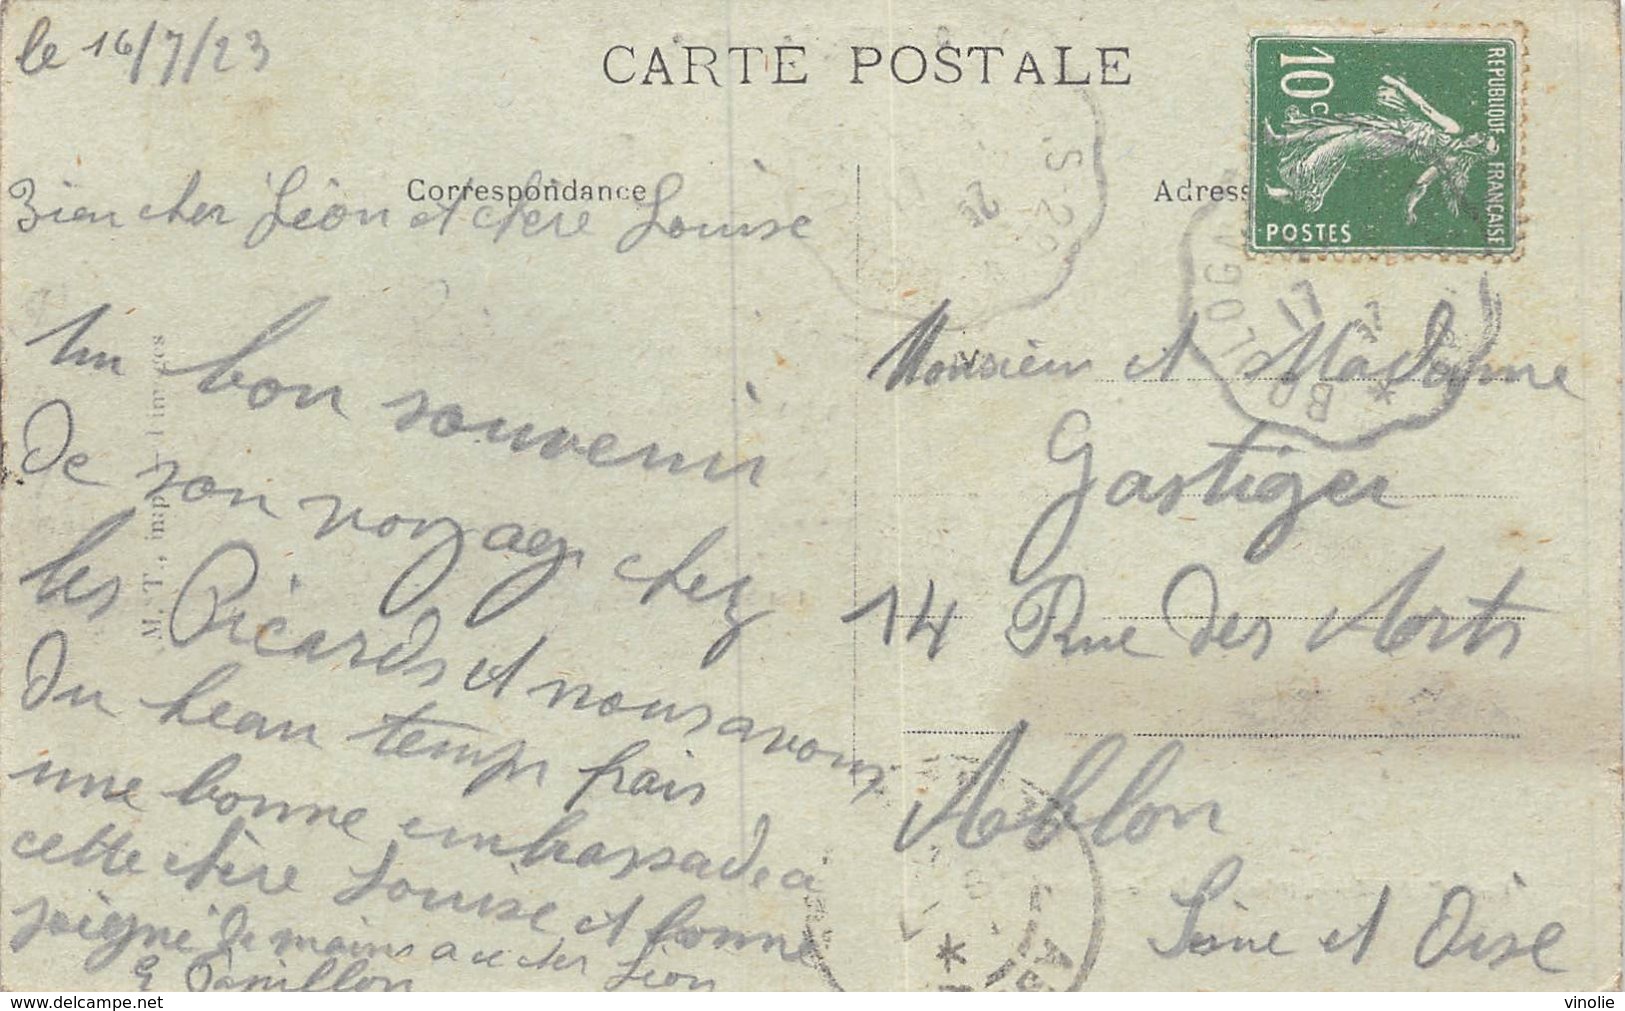 le 16/7/23
CARTE POSTALE
REPUBLIQUE FRANÇAISE
10c
POSTES
Correspondance
Adress
Bien cher Léon et chere Louise
Un bon souvenir
De son voyage chez
les Picards et nous avons
Du beau temps frais
une bonne embrassade a
cette chere Louise et bonne
poigné De mains a ce cher Léon
M. T., imp
Monsieur et Madame
Gastiger
14 Rue Des Arts
Ablon
Seine et Oise
17
delcampe.net
vinolie